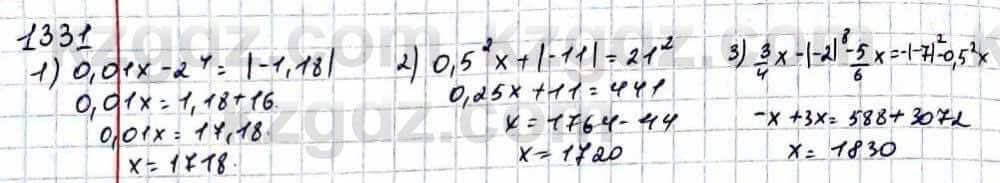 1331
1) 0,01x - 2⁴ = |-1,18|
0,01x = 1,18 + 16.
0,01x = 17,18.
x = 1718.
2) 0,5²x + |-11| = 21²
0,25x + 11 = 441
x = 1764 - 44
x = 1720
3) 3/4 x - |-2|⁸ - 5/6 x = -|-7|² - 0,5²x
-x + 3x = 588 + 3072
x = 1830
kzgdz.com